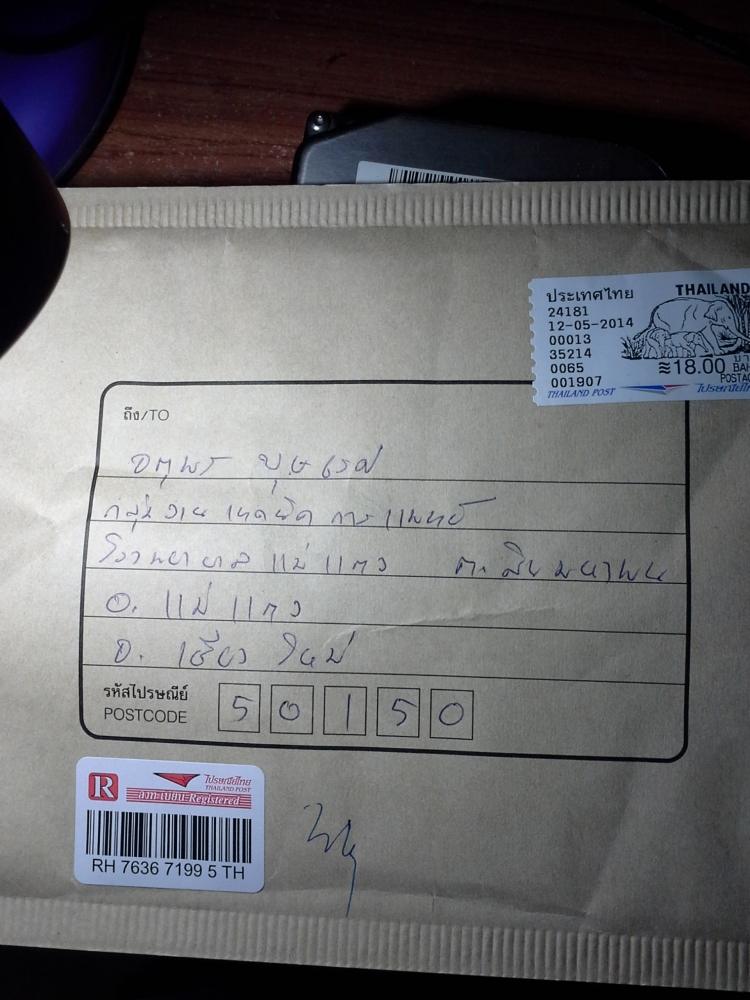 ประเทศไทย THAILAND
24181
12-05-2014
00013
35214
0065
001907
≋18.00
THAILAND POST ไปรษณีย์ไทย
ถึง/TO
จตุพร
กลุ่มงาน เทคนิค การแพทย์
โรงพยาบาล แม่แตง ต. สันมหาพน
อ. แม่แตง
จ. เชียงใหม่
รหัสไปรษณีย์
POSTCODE 50150
R ไปรษณีย์ไทย
THAILAND POST
ลงทะเบียน-Registered
RH 7636 7199 5 TH